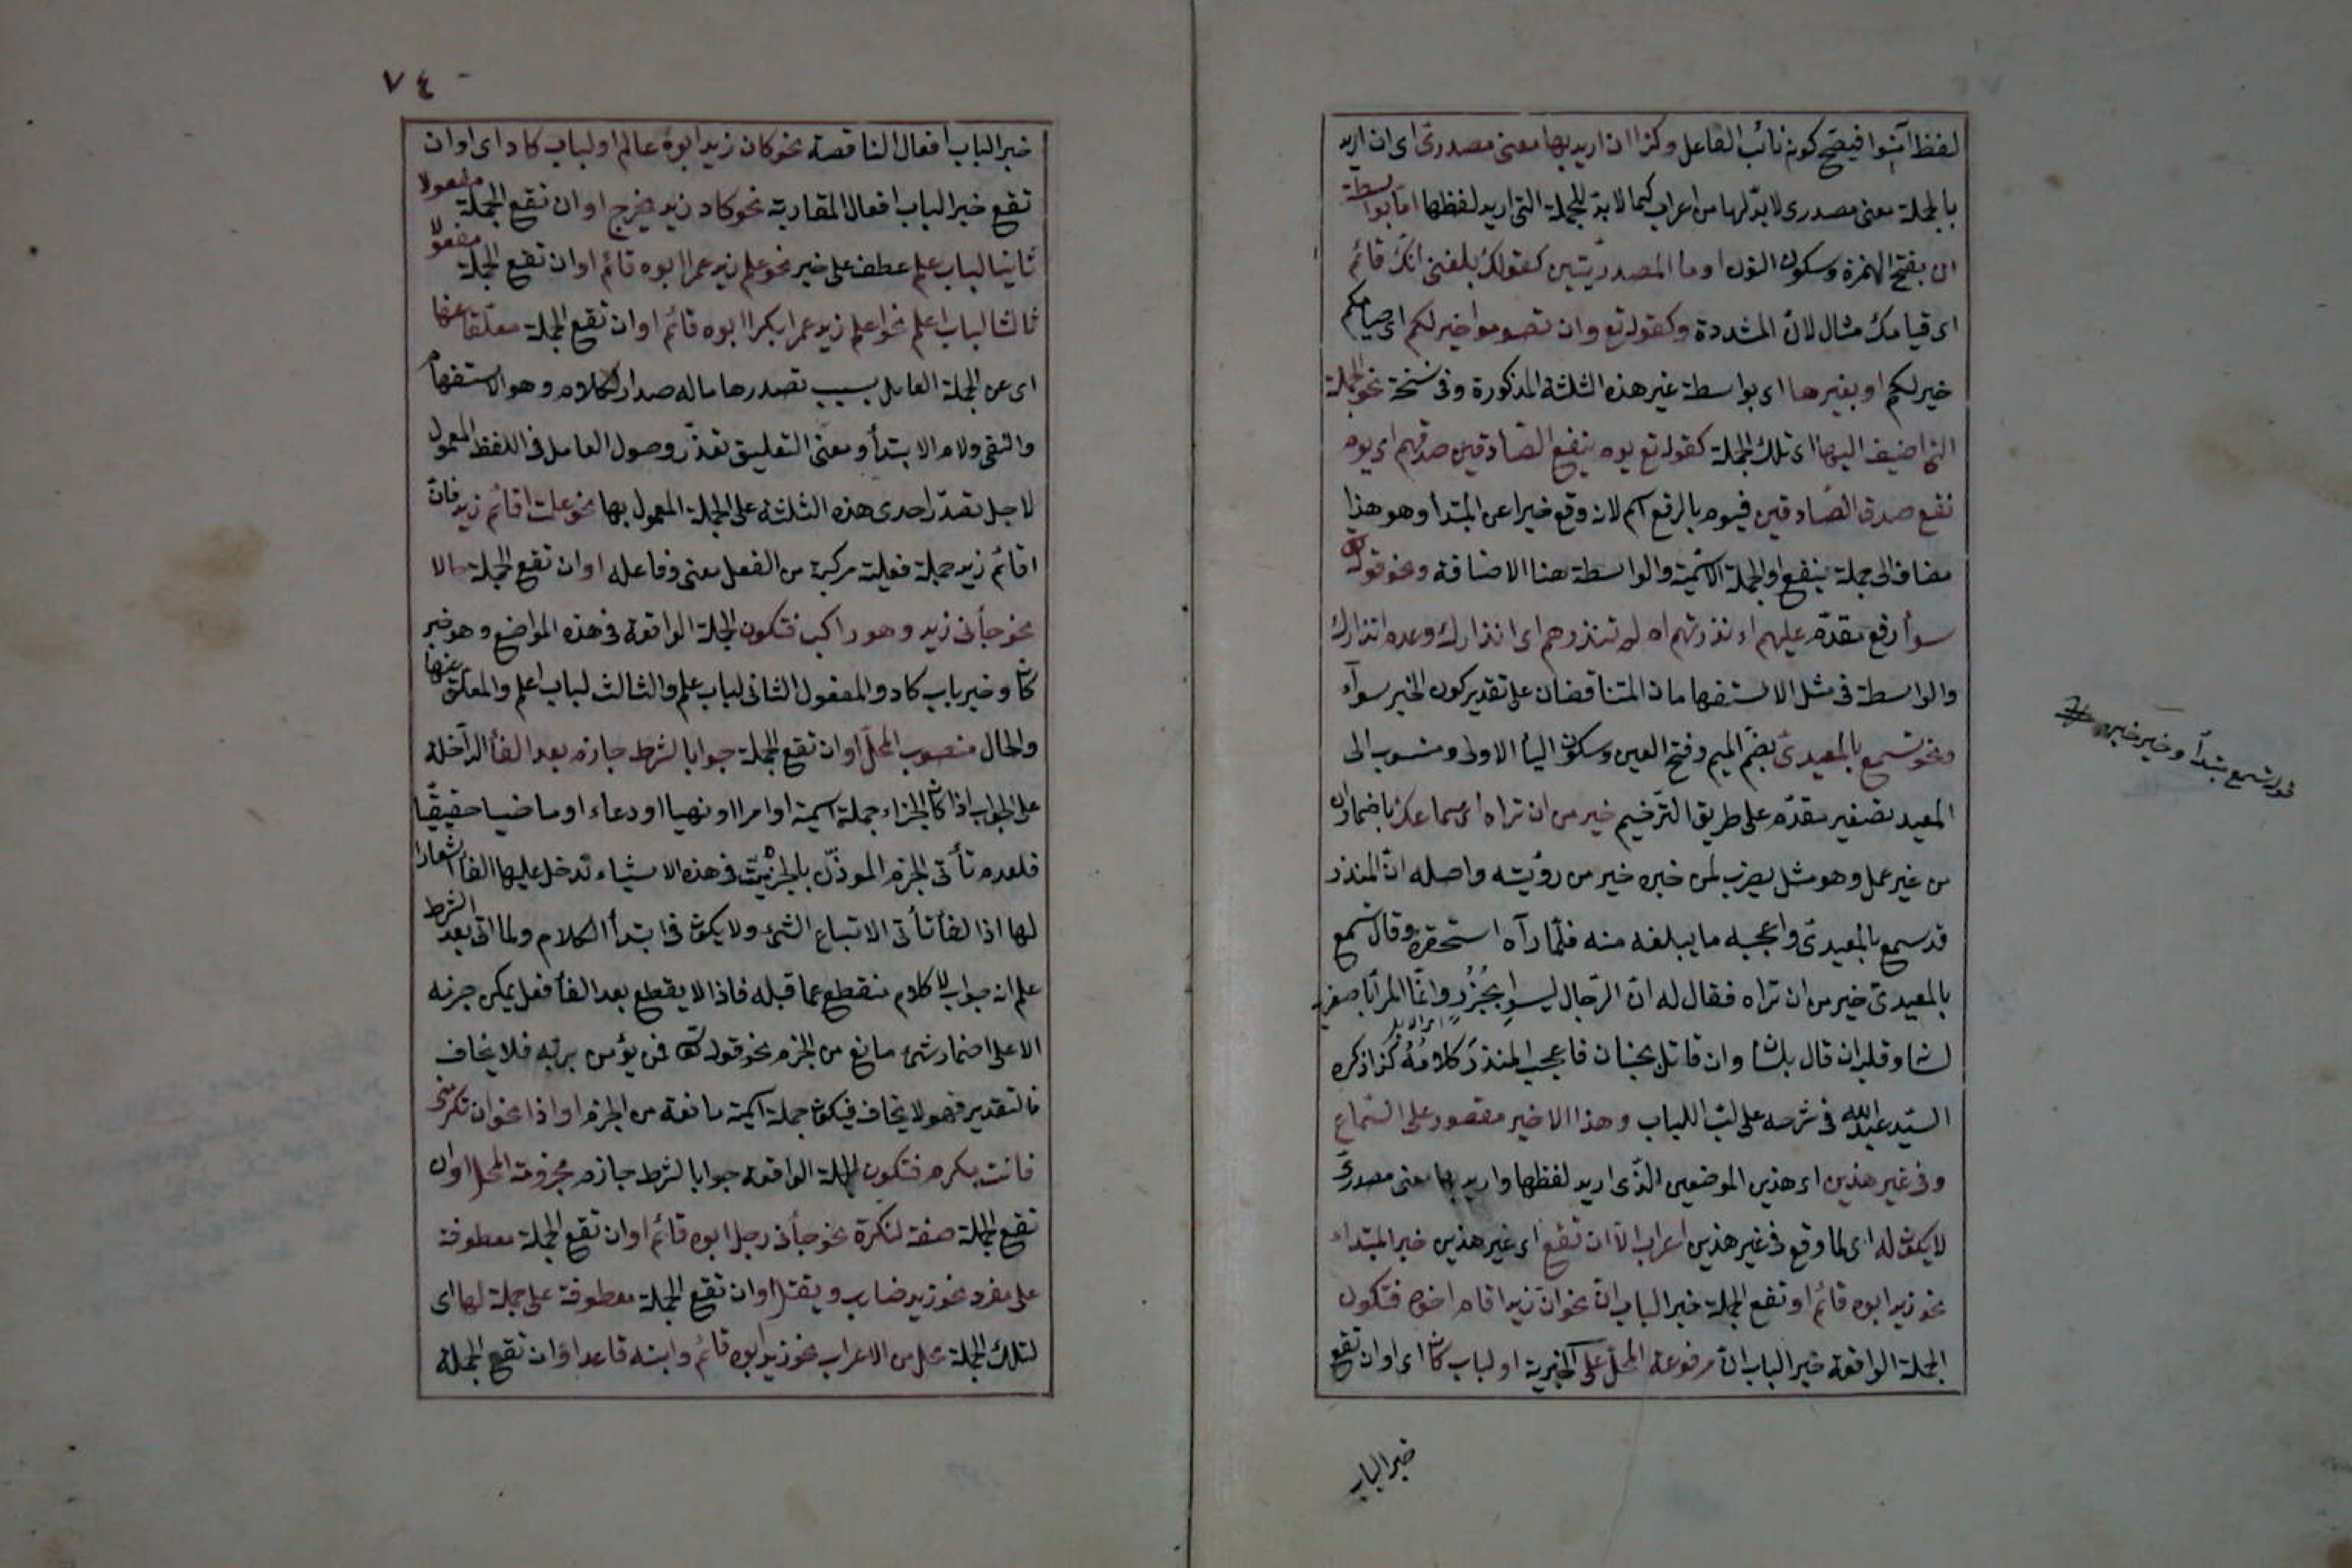 لفظ آمنوا فيصح كونه نائب الفاعل وكذا ان اريد بها معنى مصدرى اى ان اريد
بالجملة معنى مصدرى لا بدّ لها من اعراب كما لا بدّ للجملة التى اريد لفظها اما بواسطة
ان بفتح الهمزة وسكون النون او ما المصدريتين كقولك بلغنى انك قائم
اى قيامك مثال لانّ المشددة وكقوله تع وان تصوموا خير لكم اى صيامكم
خير لكم او بغيرها اى بواسطة غير هذه الثلثة المذكورة وفى نسخة نحو الجملة
التى اضيف اليها اى تلك الجملة كقوله تع يوم ينفع الصادقين صدقهم اى يوم
نفع صدق الصادقين فيوم بالرفع اسم لان وقع خبرا عن المبتدأ وهو هذا
مضاف الى جملة ينفع او الجملة الاسمية والواسطة هنا الاضافة ونحو قوله تع
سوأ رفع مقدم عليهم اء نذرتهم ام لم تنذرهم اى انذارك وعدم انذارك
والواسطة فى مثل الاستفهامان المتناقضان على تقدير كون الخبر سوآء
ونحو تسمع بالمعيدىّ بضم الميم وفتح العين وسكون اليأ الاولى ومنسوب الى
المعيد تصغير مقدم على طريق الترخيم خير من ان تراه اى سماعك باضمار ان
من غير عمل وهو مثل يضرب لمن خبره خير من رؤيته واصله ان المنذر
قد سمع بالمعيدىّ واعجبه ما يبلغه منه فلمّا رآه استحقره وقال تسمع
بالمعيدىّ خير من ان تراه فقال له انّ الرّجال ليسوا بجُزُرٍ وانّما المرأ باصغريه
لسانه وقلبه ان قال بلسان وان قاتل بجنان فاعجب المنذرَ كلامُهُ كذا ذكره
السيّد عبد الله فى شرحه على لبّ اللباب وهذا الاخير مقصور على السّماع
وفى غير هذين اى هذين الموضعين الذى اريد لفظها واريد بها معنى مصدرىّ
لا يكون له اى لما وقع فى غير هذين اعراب الّا ان تقع اى غير هذين خبر المبتداء
نحو زيد ابوه قائم او تقع الجملة خبرا لباب انّ نحو انّ زيدا قام اخوه فتكون
الجملة الواقعة خبرا لباب انّ مرفوعة المحلّ على الخبرية او لباب كان اى او ان تقع
خبر الباب
تسمع مبتدأ وخير خبره
٧٤
خبر الباب افعال الناقصة نحو كان زيد ابوه عالم او لباب كاد اى او ان
تقع خبر الباب افعال المقاربة نحو كاد زيد يخرج او ان تقع الجملة مفعولا
ثانيا لباب علم عطف على خبر نحو علم زيد عمرا ابوه قائم او ان تقع الجملة مفعولا
ثالثا لباب اعلم نحو اعلم زيد عمرا بكرا ابوه قائم او ان تقع الجملة معلّقا عنها
اى عن الجملة العامل بسبب تصدرها ما له صدر الكلام وهو الاستفهام
والنفى ولام الابتدأ ومعنى التعليق تعذّر وصول العامل فى اللفظ المعمول
لاجل تصدّر احدى هذه الثلثة على الجملة المعمول بها نحو علمت اقائم زيد فانّ
اقائم زيد جملة فعلية مركبة من الفعل معنى وفاعله او ان تقع الجملة حالا
نحو جأنى زيد وهو راكب فتكون الجملة الواقعة فى هذه المواضع وهو خبر
كان وخبر باب كاد والمفعول الثانى لباب علم والثالث لباب اعلم والمعلق عنها
والحال منصوب المحلّ او ان تقع الجملة جوابا لشرط جازم بعد الفأ الدّاخلة
على الجواب اذا كان الجزاء جملة اسمية او امرا او نهيا او دعاء او ماضيا حقيقيًّا
فلعدم تأتى الجزم الموذن بالجزئيّة فى هذه الاشياء تدخل عليها الفأ اشعارا
لها اذا لفأ تأتى الاتباع الشئ ولا يكون فى ابتدأ الكلام ولما اتى بعد الشرط
علم انه جواب لا كلام منقطع عما قبله فاذا لا يقطع بعد الفأ فعل يمكن جزمه
الا على اضمار شئ مانع من الجزم نحو قوله تع فمن يؤمن بربه فلا يخاف
فالتقدير فهو لا يخاف فيكون جملة اسمية مانعة من الجزم او اذا نحو ان تكرمنى
فانت مكرم فتكون الجملة الواقعة جوابا لشرط جازم مجزومة المحل او ان
تقع الجملة صفة لنكرة نحو جأنى رجل ابوه قائم او ان تقع الجملة معطوفة
على مفرد نحو زيد ضارب ويقتل او ان تقع الجملة معطوفة على جملة لها اى
لتلك الجملة محل من الاعراب نحو زيد ابوه قائم وابنه قاعد او ان تقع الجملة